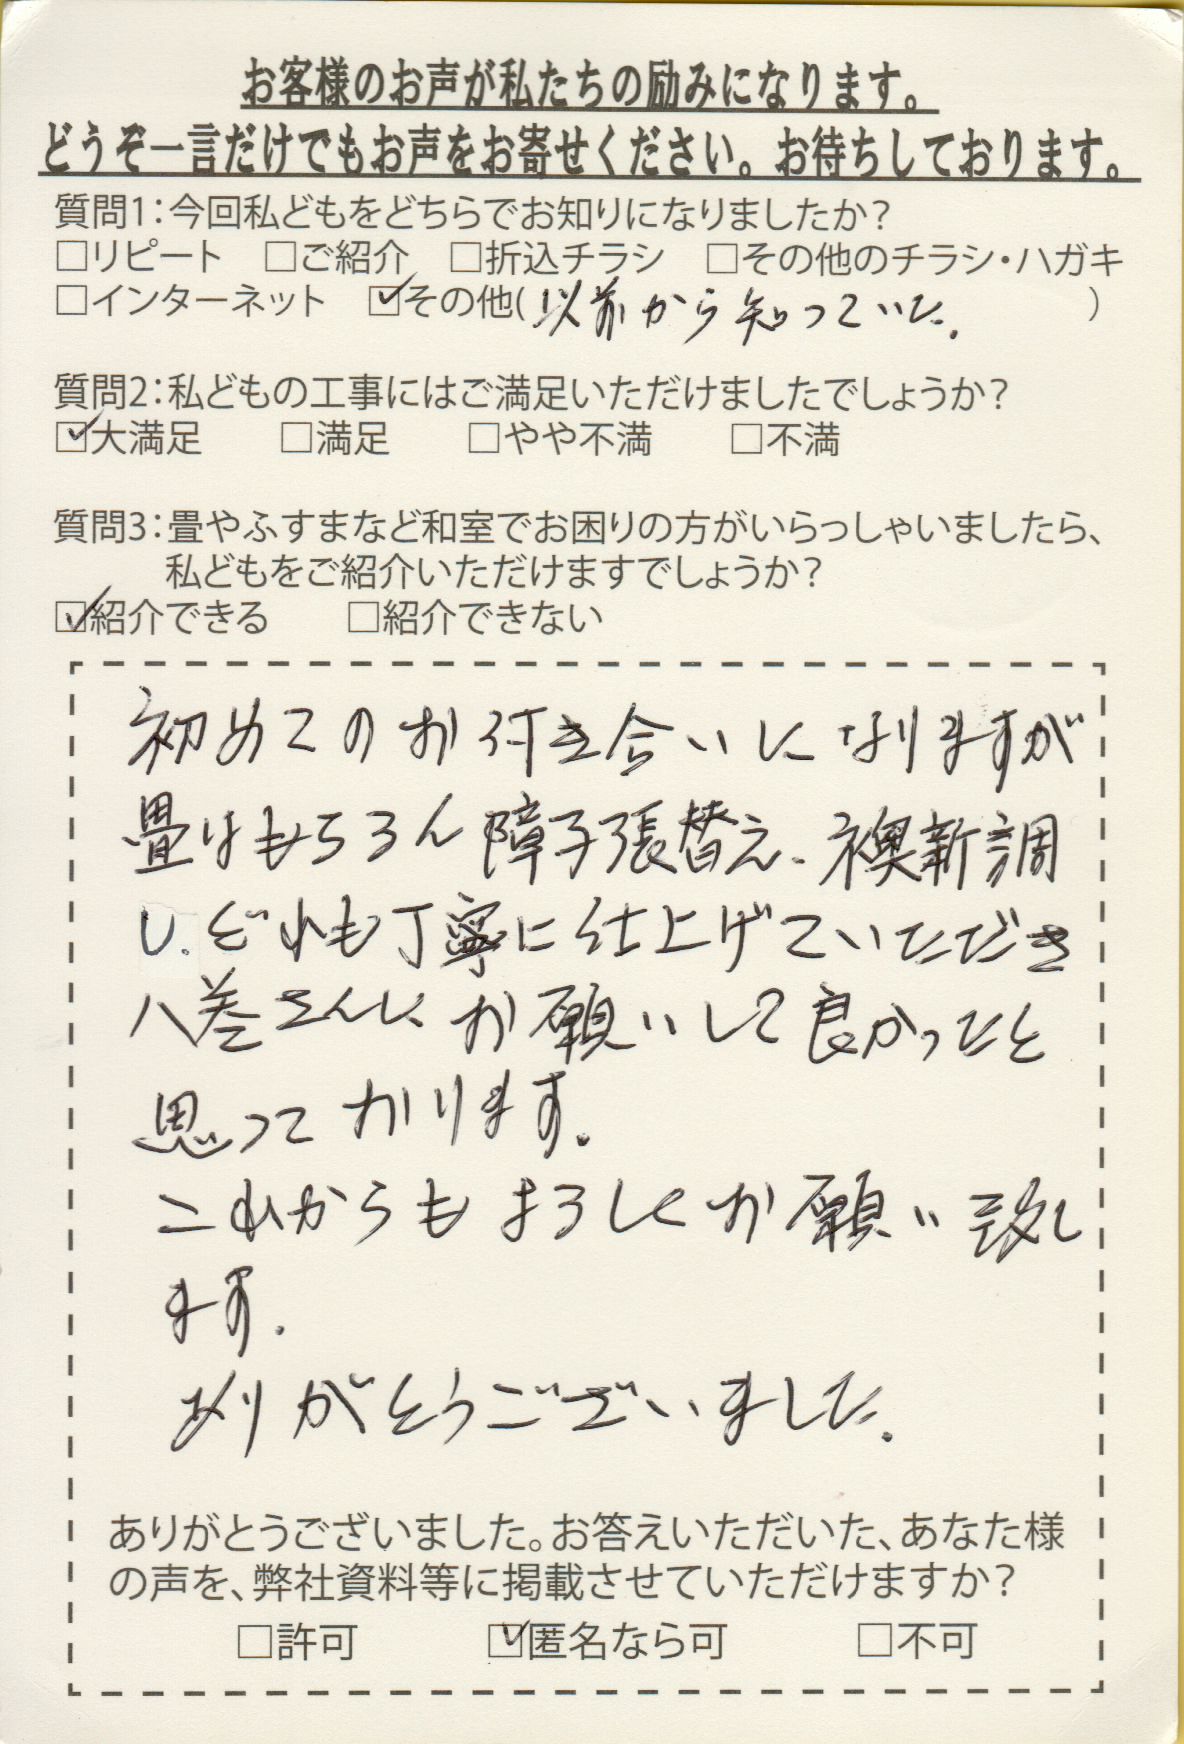 お客様のお声が私たちの励みになります。
どうぞ一言だけでもお声をお寄せください。お待ちしております。
質問1：今回私どもをどちらでお知りになりましたか？
□リピート □ご紹介 □折込チラシ □その他のチラシ・ハガキ
□インターネット ☑その他(以前から知っていた。)
質問2：私どもの工事にはご満足いただけましたでしょうか？
☑大満足 □満足 □やや不満 □不満
質問3：畳やふすまなど和室でお困りの方がいらっしゃいましたら、
私どもをご紹介いただけますでしょうか？
☑紹介できる □紹介できない
初めてのお付き合いになりますが
畳はもちろん障子張替え、襖新調
し、どれも丁寧に仕上げていただき
八巻さんに、お願いして良かったと
思っております。
これからもよろしくお願い致し
ます。
ありがとうございました。
ありがとうございました。お答えいただいた、あなた様
の声を、弊社資料等に掲載させていただけますか？
□許可 ☑匿名なら可 □不可